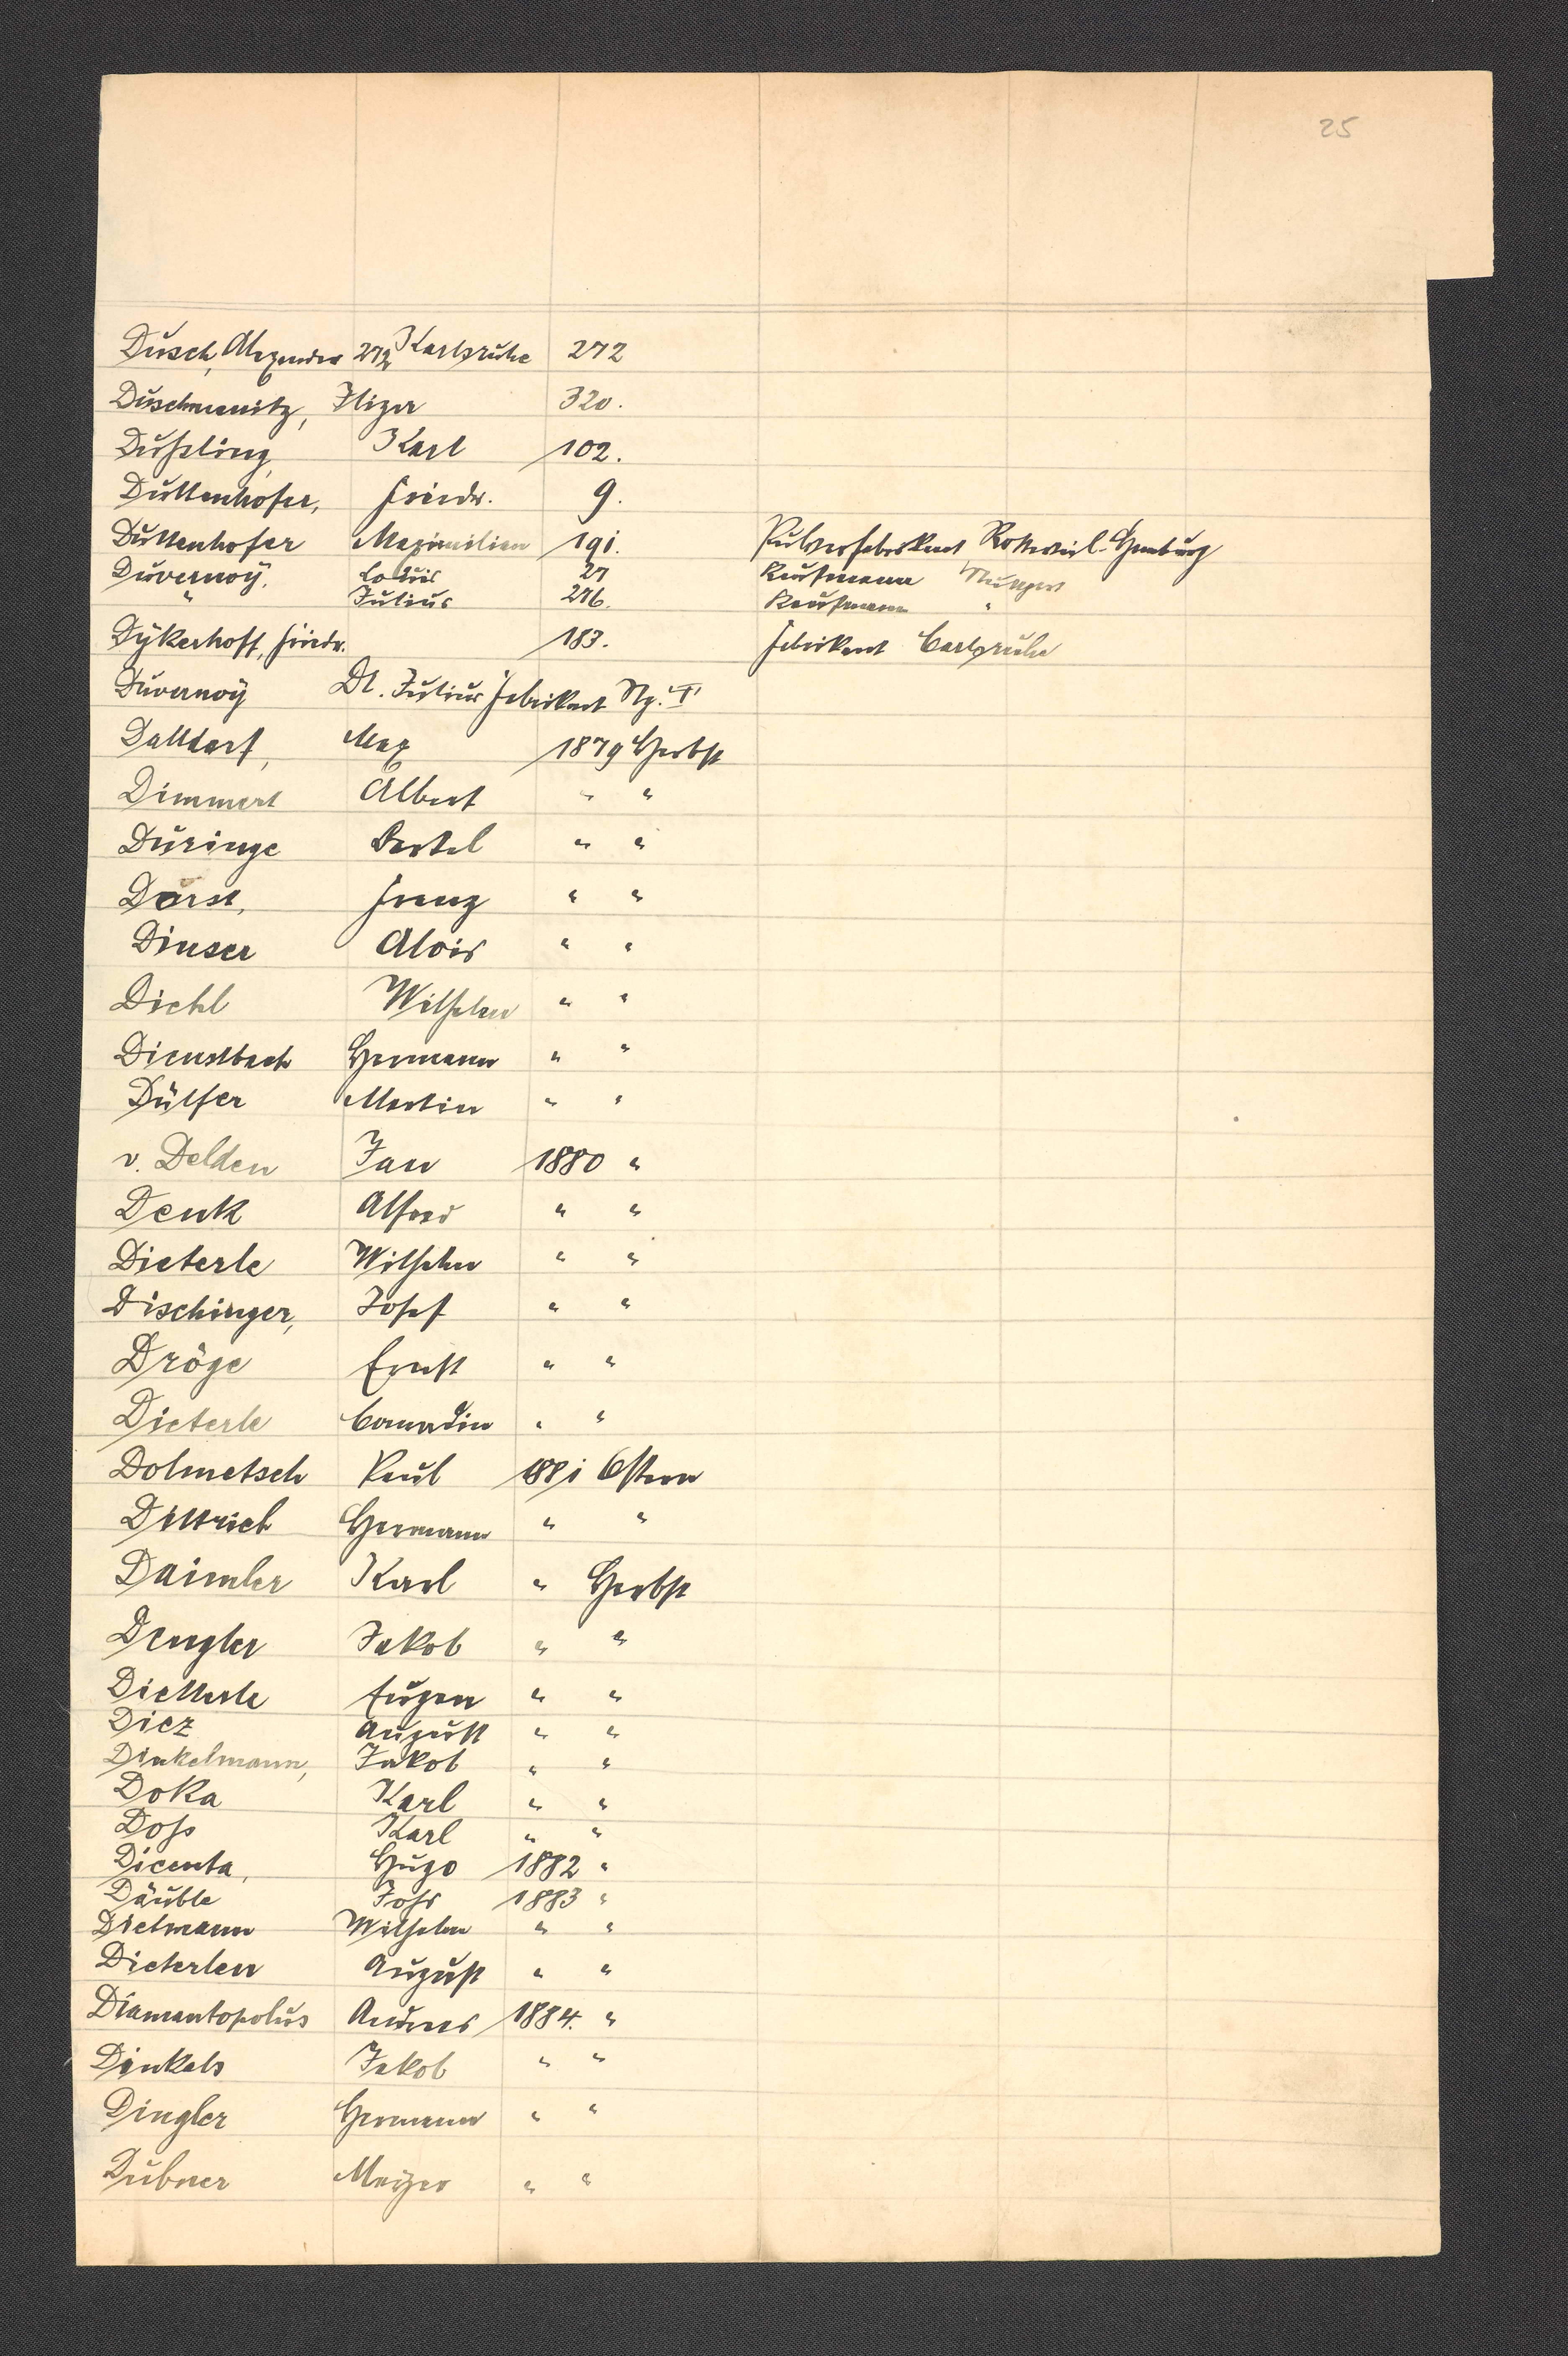 25
Dusch, Alexander 272 Karlsruhe 272
Duschmanitz, Flizer 320.
Dußling, Karl 102.
Duttenhofer, Friedr. 9.
Duttenhofer Maximilian 191. Pulverfabrikant Rottweil-Hamburg
Duvernoÿ, Louis 27 Kaufmann Stuttgart
" Julius 276. Kaufmann "
Dÿkerhoff, Friedr. 183. Fabrikant Carlsruhe
Duvernoÿ Dl. Julius Fabrikant Stg. T
Dalldorf, Max 1879 Herbst
Dimmert Albert " "
Düringe Bartel " "
Dorst, Franz " "
Dinser Alois " "
Diehl Wilhelm " "
Dienstbach Hermann " "
Dülfer Martin " "
v. Delden Jan 1880 "
Denk Alfred " "
Dieterle Wilhelm " "
Dischinger, Josef " "
Dröge Ernst " "
Dieterle Conradin " "
Dolmetsch Paul 1881 Ostern
Dittrich Hermann " "
Daimler Karl " Herbst
Dengler Jakob " "
Dietterle Eugen " "
Diez August " "
Dinkelmann, Jakob " "
Doka Karl " "
Doß Karl " "
Dicenta, Hugo 1882 "
Däuble Johs 1883 "
Dietmann Wilhelm " "
Dieterlen August " "
Diamantopolus Andreas 1884. "
Dinkels Jakob " "
Dingler Hermann " "
Dubner " "